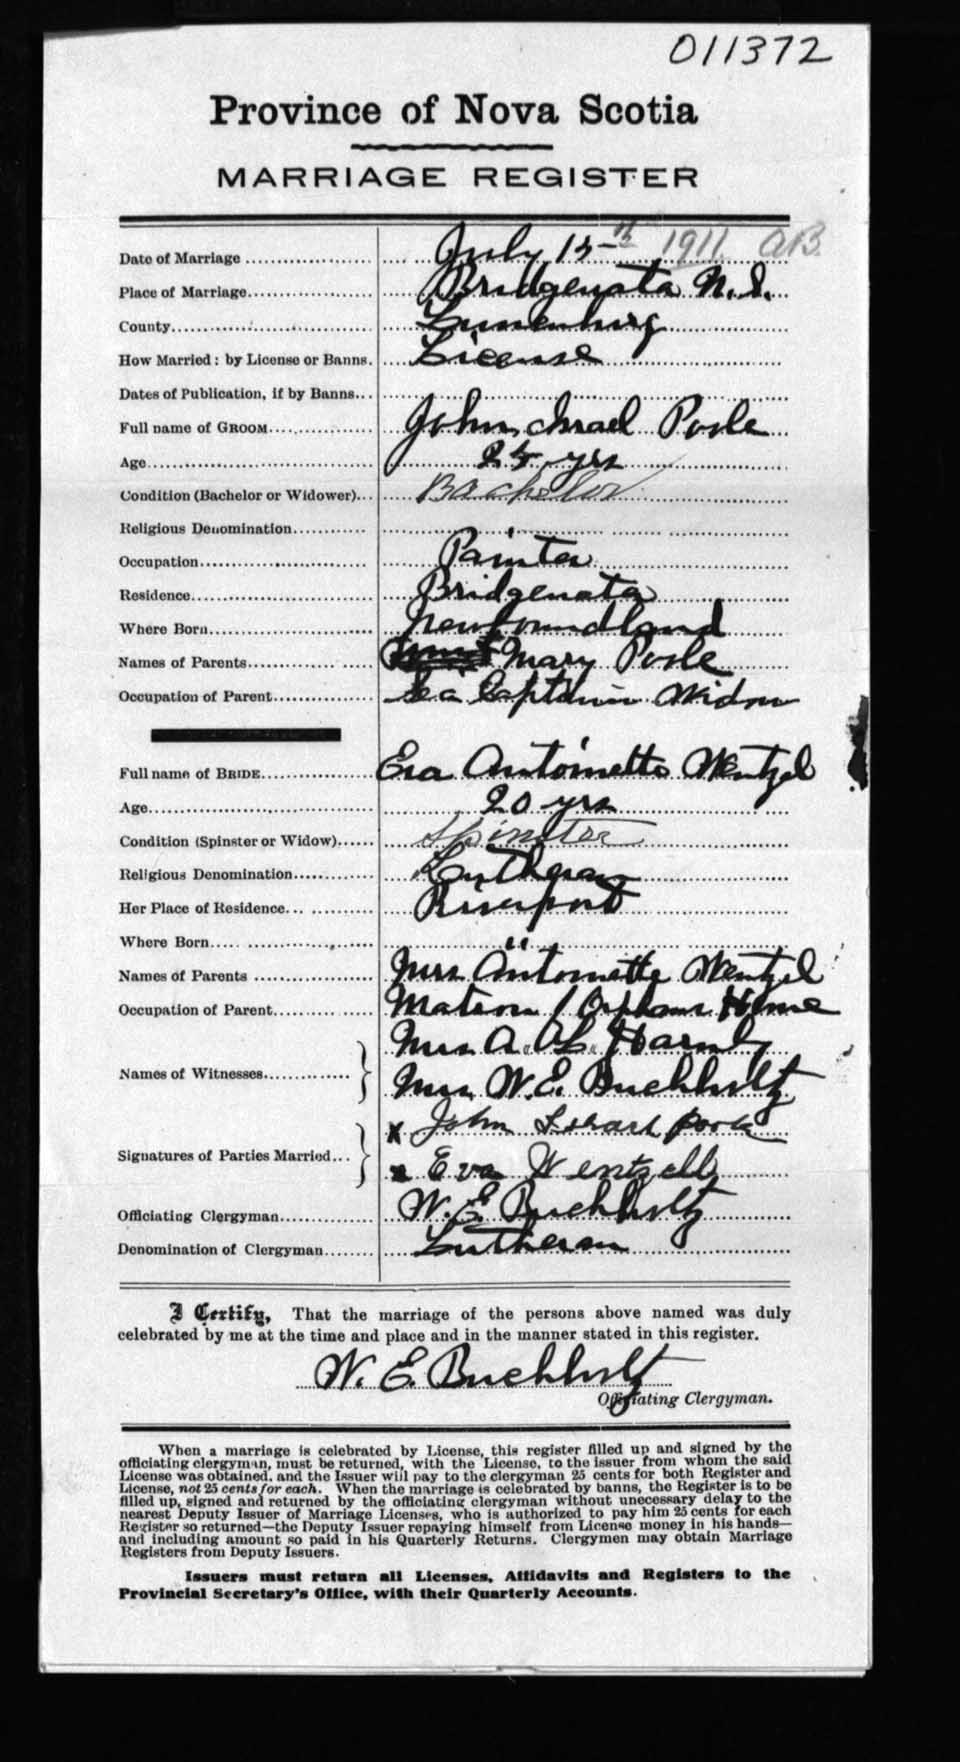 011372
Province of Nova Scotia
MARRIAGE REGISTER
Date of Marriage July 1911. AB.
Place of Marriage Bridgewater N.S.
County Lunenburg
How Married: by License or Banns. License
Dates of Publication, if by Banns
Full name of GROOM John Israel Poole
Age 25 yrs
Condition (Bachelor or Widower) Bachelor
Religious Denomination
Occupation Painter
Residence Bridgewater
Where Born Newfoundland
Names of Parents Mary Poole
Occupation of Parent Sea Captain Widow
Full name of BRIDE Eva Antoinette Wentzel
Age 20 yrs
Condition (Spinster or Widow) Spinster
Religious Denomination Lutheran
Her Place of Residence Riverport
Where Born "
Names of Parents Mrs Antoinette Wentzel
Occupation of Parent Matron / Orphans Home
Mrs A.
Names of Witnesses Mrs W. E. Buchholtz
x John
Signatures of Parties Married x Eva Wentzell
Officiating Clergyman W. E. Buchholtz
Denomination of Clergyman Lutheran
I Certify, That the marriage of the persons above named was duly
celebrated by me at the time and place and in the manner stated in this register.
W. E. Buchholtz
Officiating Clergyman.
When a marriage is celebrated by License, this register filled up and signed by the
officiating clergyman, must be returned, with the License, to the issuer from whom the said
License was obtained, and the Issuer will pay to the clergyman 25 cents for both Register and
License, not 25 cents for each. When the marriage is celebrated by banns, the Register is to be
filled up, signed and returned by the officiating clergyman without unecessary delay to the
nearest Deputy Issuer of Marriage Licenses, who is authorized to pay him 25 cents for each
Register so returned—the Deputy Issuer repaying himself from License money in his hands—
and including amount so paid in his Quarterly Returns. Clergymen may obtain Marriage
Registers from Deputy Issuers.
Issuers must return all Licenses, Affidavits and Registers to the
Provincial Secretary's Office, with their Quarterly Accounts.